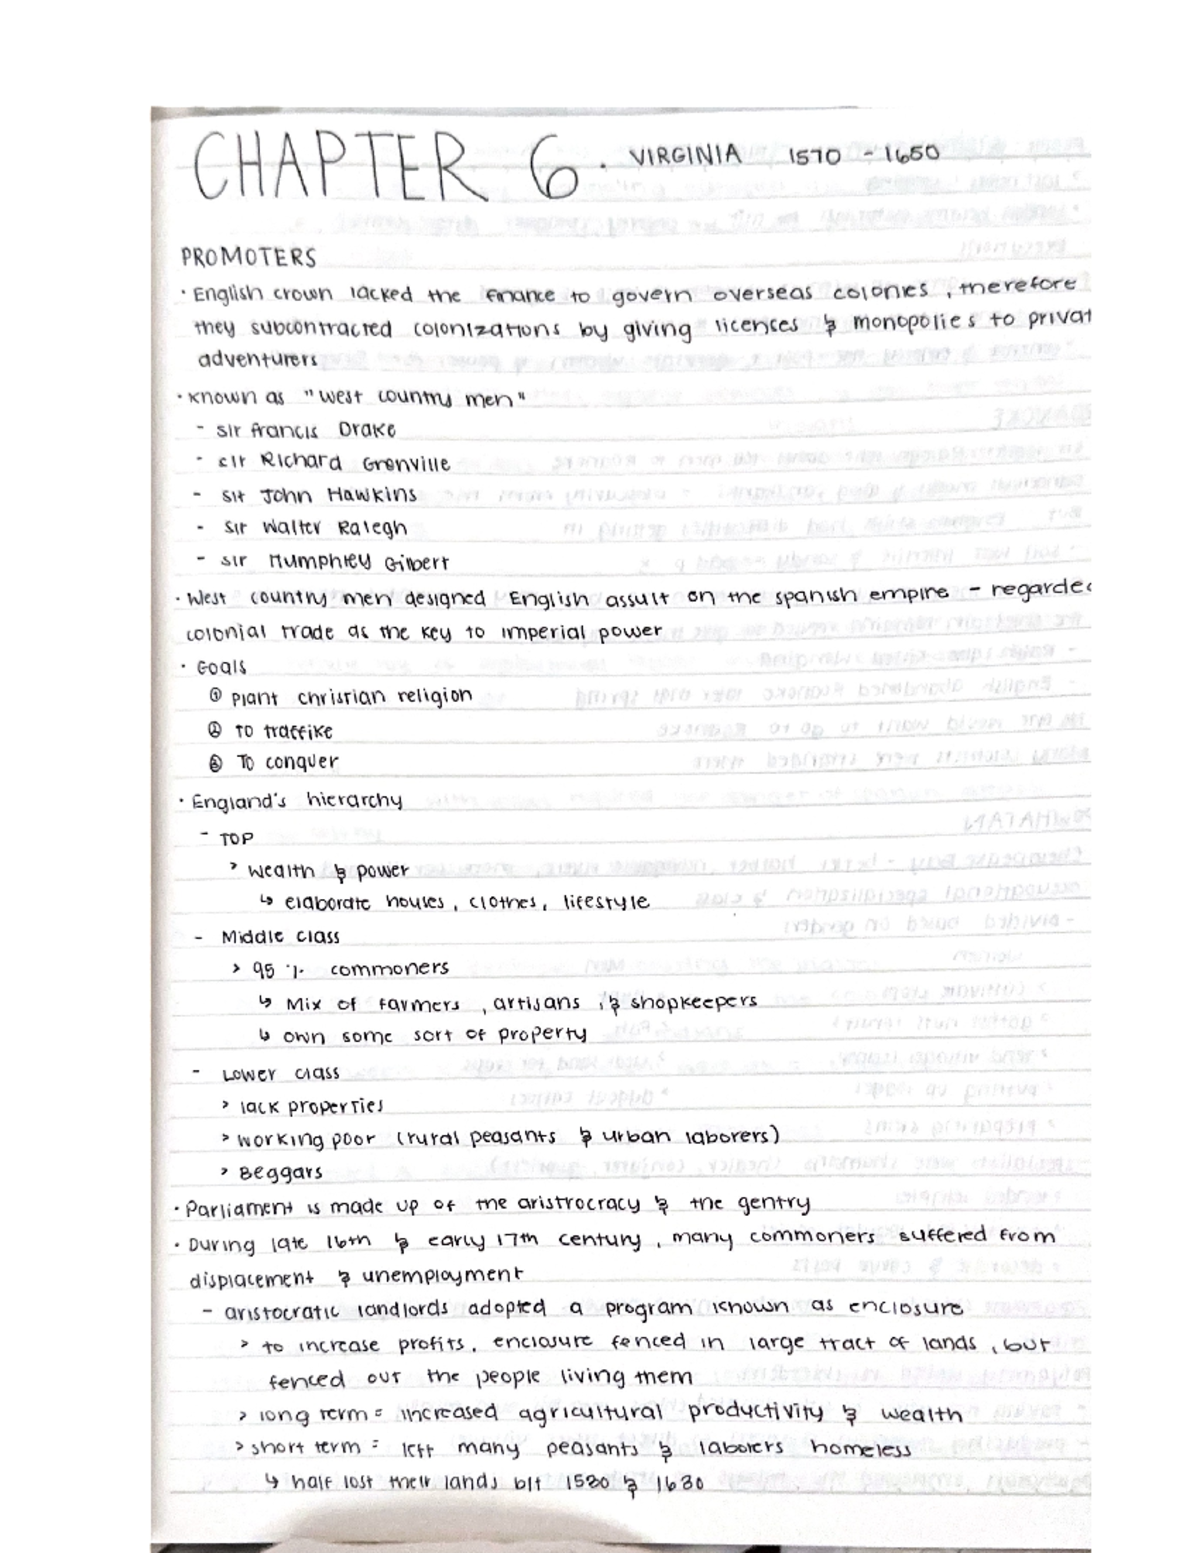 CHAPTER 6 . VIRGINIA 1570 - 1650
PROMOTERS
· English crown lacked the finance to govern overseas colonies , therefore
they subcontracted colonizations by giving licenses & monopolies to privat
adventurers
· known as "west country men"
- sir francis Drake
- sir Richard Grenville
- sir John Hawkins
- sir Walter Ralegh
- sir Humphrey Gilbert
· West country men designed English assult on the spanish empire - regarded
colonial trade as the key to imperial power
· Goals
① Plant christian religion
② TO traffike
③ To conquer
· England's hierarchy
- TOP
> wealth & power
↳ elaborate houses, clothes, lifestyle
- Middle class
> 95 % commoners
↳ Mix of farmers , artisans , & shopkeepers
↳ own some sort of property
- Lower class
> lack properties
> working poor (rural peasants & urban laborers)
> Beggars
· Parliament is made up of the aristrocracy & the gentry
· During late 16th & early 17th century , many commoners suffered from
displacement & unemployment
- aristocratic landlords adopted a program known as enclosure
> to increase profits, enclosure fenced in large tract of lands , but
fenced out the people living them
> long term = increased agricultural productivity & wealth
> short term = left many peasants & laborers homeless
↳ half lost their lands b/t 1530 & 1630